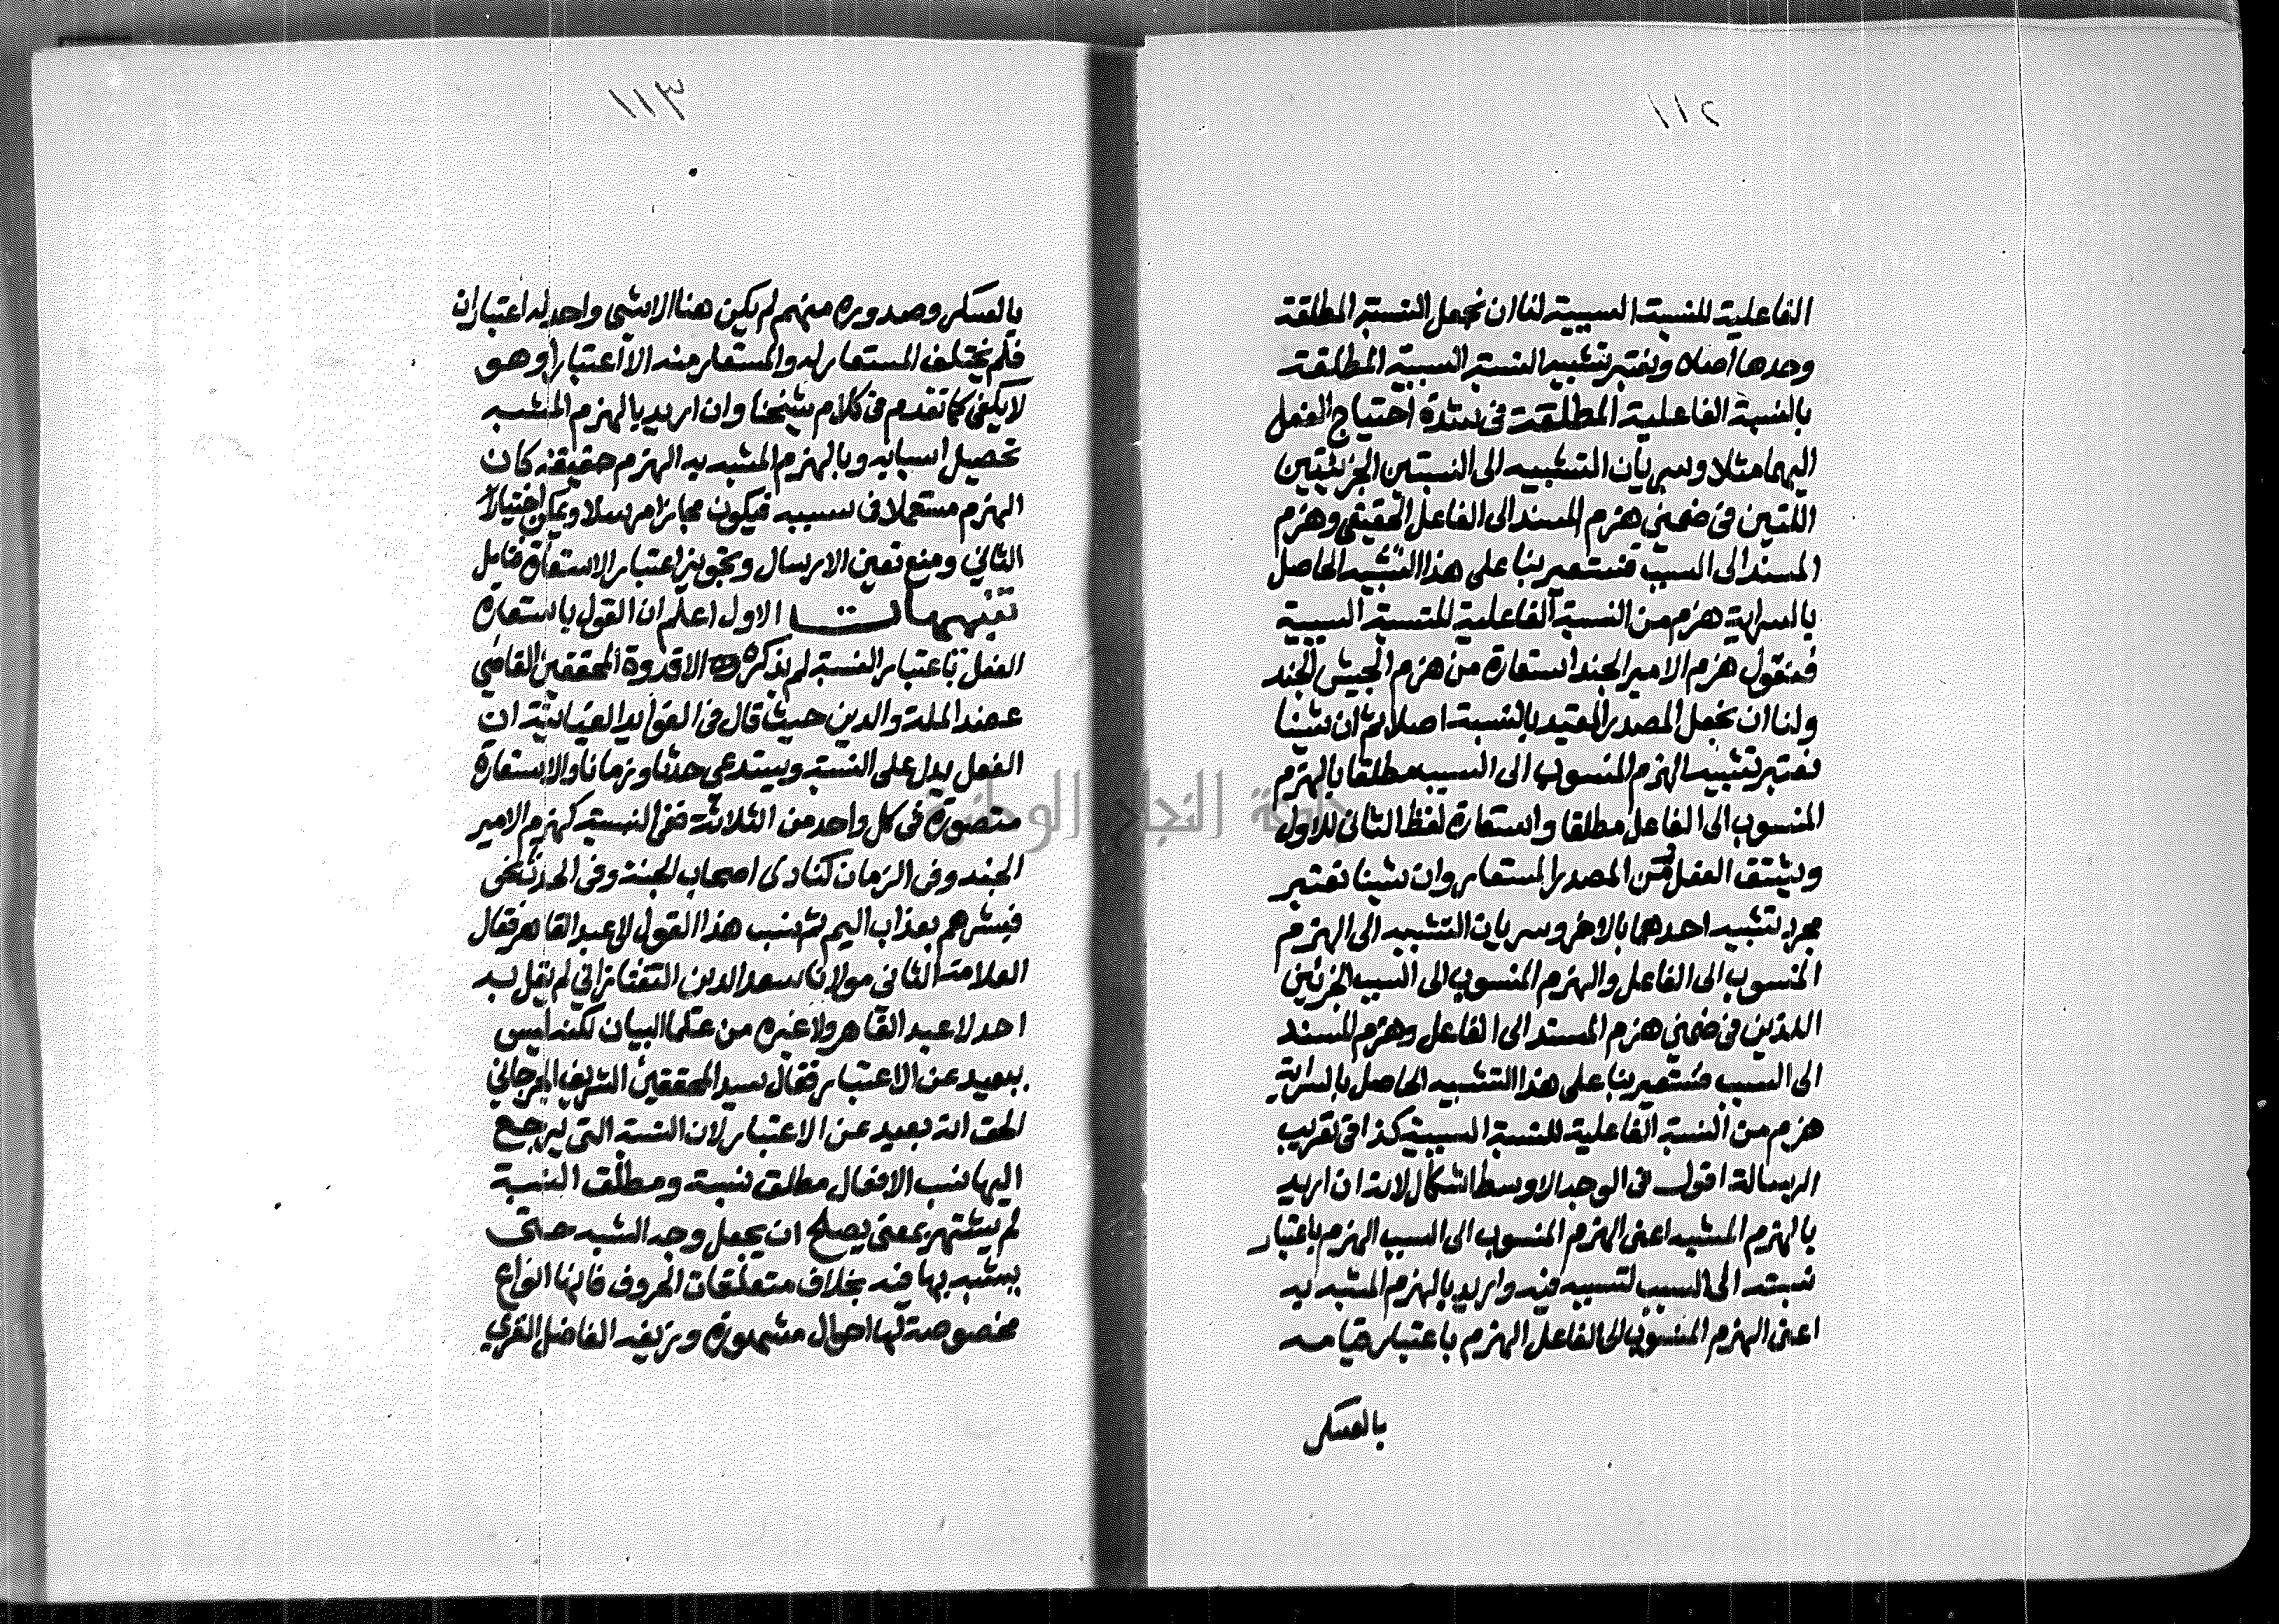 ١١٢
الفاعلية للنسبة السببية لنا ان نجعل النسبة المطلقة
وحدها اصلا ونعتبر تشبيه النسبة السببية المطلقة
بالنسبة الفاعلية المطلقة في شدة احتياج الفعل
اليهما مثلا وسريان التشبيه الى النسبتين الجزئيتين
اللتين في ضمني هزم المسند الى الفاعل الحقيقي وهزم
المسند الى السبب فنستعير بنا على هذا التشبيه الحاصل
بالسراية هزم من النسبة الفاعلية للنسبة السببية
فنقول هزم الامير الجند استعارة من هزم الجيش الجند
ولنا ان نجعل المصدر المقيد بالنسبة اصلا ثم ان شينا
نعتبر تشبيه الهزم المنسوب الى السبب مطلقا بالهزم
المنسوب الى الفاعل مطلقا واستعارة لفظ الثاني للاول
ويشتق الفعل من المصدر المستعار وان شينا نعتبر
مجرد تشبيه احدهما بالاخر وسريان التشبيه الى الهزم
المنسوب الى الفاعل والهزم المنسوب الى السبب الجزئين
اللذين في ضمني هزم المسند الى الفاعل وهزم المسند
الى السبب فنستعير بنا على هذا التشبيه الحاصل بالسراية
هزم من النسبة الفاعلية للنسبة السببية كذا في تقريب
الرسالة اقول في الوجه الاوسط اشكال لانه ان اريد
بالهزم المشبه اعني الهزم المنسوب الى السبب الهزم باعتبار
نسبته الى السبب لتسببه فيه واريد بالهزم المشبه به
اعني الهزم المنسوب الى الفاعل الهزم باعتبار قيامه
بالعسكر
١١٣
بالعسكر وصدوره منهم لم يكن هنا الا شي واحد له اعتباران
فلم يختلف المستعار له والمستعار منه الا اعتبارا وهو
لا يكفي كما تقدم في كلام شيخنا وان اريد بالهزم المشبه
تحصيل اسبابه وبالهزم المشبه به الهزم حقيقة كان
الهزم مستعملا في سببه فيكون مجازا مرسلا ويمكن اختيار
الثاني ومنع تعين الارسال وتجويز اعتبار الاستعارة فتامل
تنبيهات الاول اعلم ان القول باستعارة
الفعل باعتبار النسبة لم يذكره الا قدوة المحققين القاضي
عضد الملة والدين حيث قال في الفوايد الغياثية ان
الفعل يدل على النسبة ويستدعي حدثا وزمانا والاستعارة
متصورة في كل واحد من الثلاثة ففي النسبة كهزم الامير
الجند وفي الزمان كنادى اصحاب الجنة وفي الحدث نحو
فبشرهم بعذاب اليم ثم نسب هذا القول لعبد القاهر فقال
العلامة الثاني مولانا سعد الدين التفتازاني لم يقل به
احد لا عبد القاهر ولا غيره من علما البيان لكنه ليس
ببعيد عن الاعتبار فقال سيد المحققين الشريف الجرجاني
الحق انه بعيد عن الاعتبار لان النسبة التي يرجع
اليها نسب الافعال مطلق نسبة ومطلق النسبة
لم يشتهر بمعنى يصلح ان يجعل وجه الشبه حتى
يشبه بها فيه بخلاف متعلقات الحروف فانها انواع
مخصوصة لها احوال مشهورة وزيفه الفاضل الفنري
جامعة النجاح الوطنية